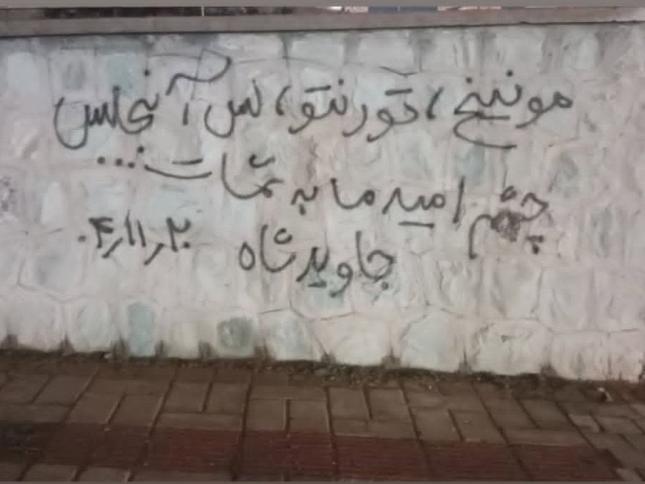 مونیخ، تورنتو، لس آنجلس
چشم امید ما به شماست...
جاوید شاه ۴٫۱۱٫۲۰